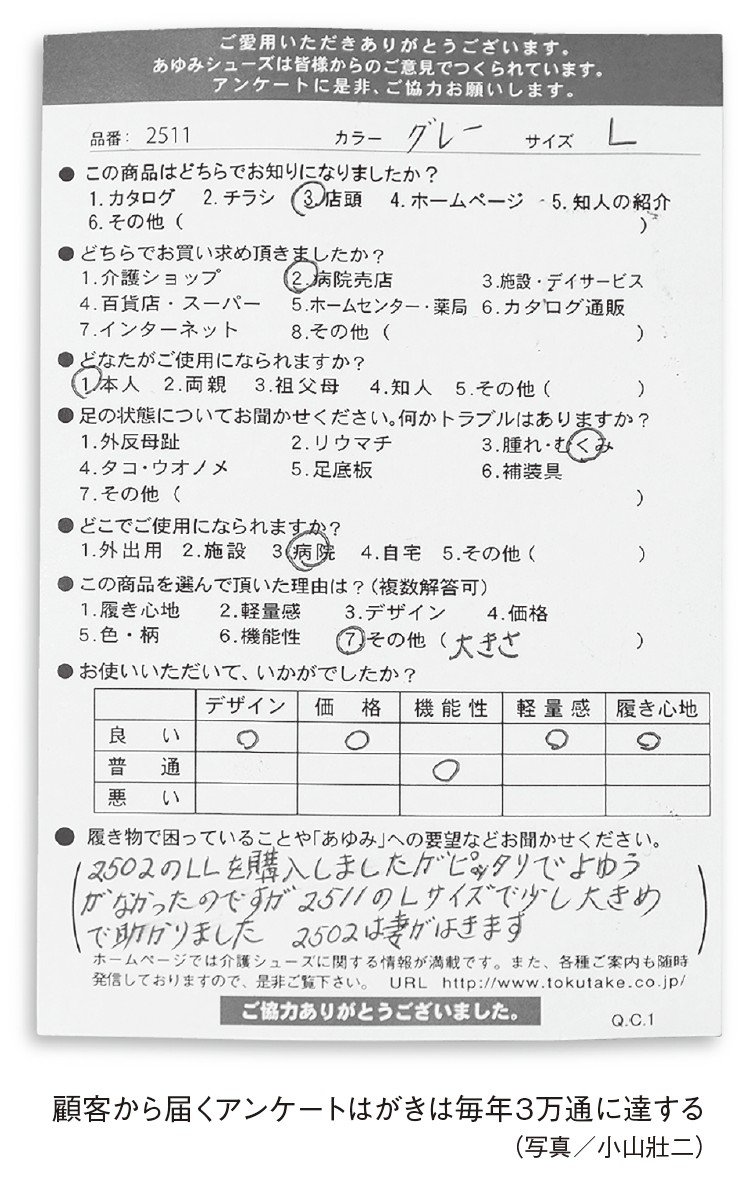 ご愛用いただきありがとうございます。
あゆみシューズは皆様からのご意見でつくられています。
アンケートに是非、ご協力お願いします。
品番: 2511 カラー グレー サイズ L
● この商品はどちらでお知りになりましたか?
1.カタログ 2.チラシ 3.店頭 4.ホームページ 5.知人の紹介
6.その他 ( )
● どちらでお買い求め頂きましたか?
1.介護ショップ 2.病院売店 3.施設・デイサービス
4.百貨店・スーパー 5.ホームセンター・薬局 6.カタログ通販
7.インターネット 8.その他 ( )
● どなたがご使用になられますか?
1.本人 2.両親 3.祖父母 4.知人 5.その他 ( )
● 足の状態についてお聞かせください。何かトラブルはありますか?
1.外反母趾 2.リウマチ 3.腫れ・むくみ
4.タコ・ウオノメ 5.足底板 6.補装具
7.その他 ( )
● どこでご使用になられますか?
1.外出用 2.施設 3.病院 4.自宅 5.その他 ( )
● この商品を選んで頂いた理由は?(複数解答可)
1.履き心地 2.軽量感 3.デザイン 4.価格
5.色・柄 6.機能性 7.その他 ( 大きさ )
● お使いいただいて、いかがでしたか?
デザイン 価格 機能性 軽量感 履き心地
良い ○ ○ ○ ○
普通 ○
悪い
● 履き物で困っていることや「あゆみ」への要望などお聞かせください。
(2502のLLを購入しましたがピッタリでよゆう
がなかったのですが2511のLサイズで少し大きめ
で助かりました 2502は妻がはきます)
ホームページでは介護シューズに関する情報が満載です。また、各種ご案内も随時
発信しておりますので、是非ご覧下さい。 URL http://www.tokutake.co.jp/
ご協力ありがとうございました。
Q.C.1
顧客から届くアンケートはがきは毎年3万通に達する
(写真/小山壯二)